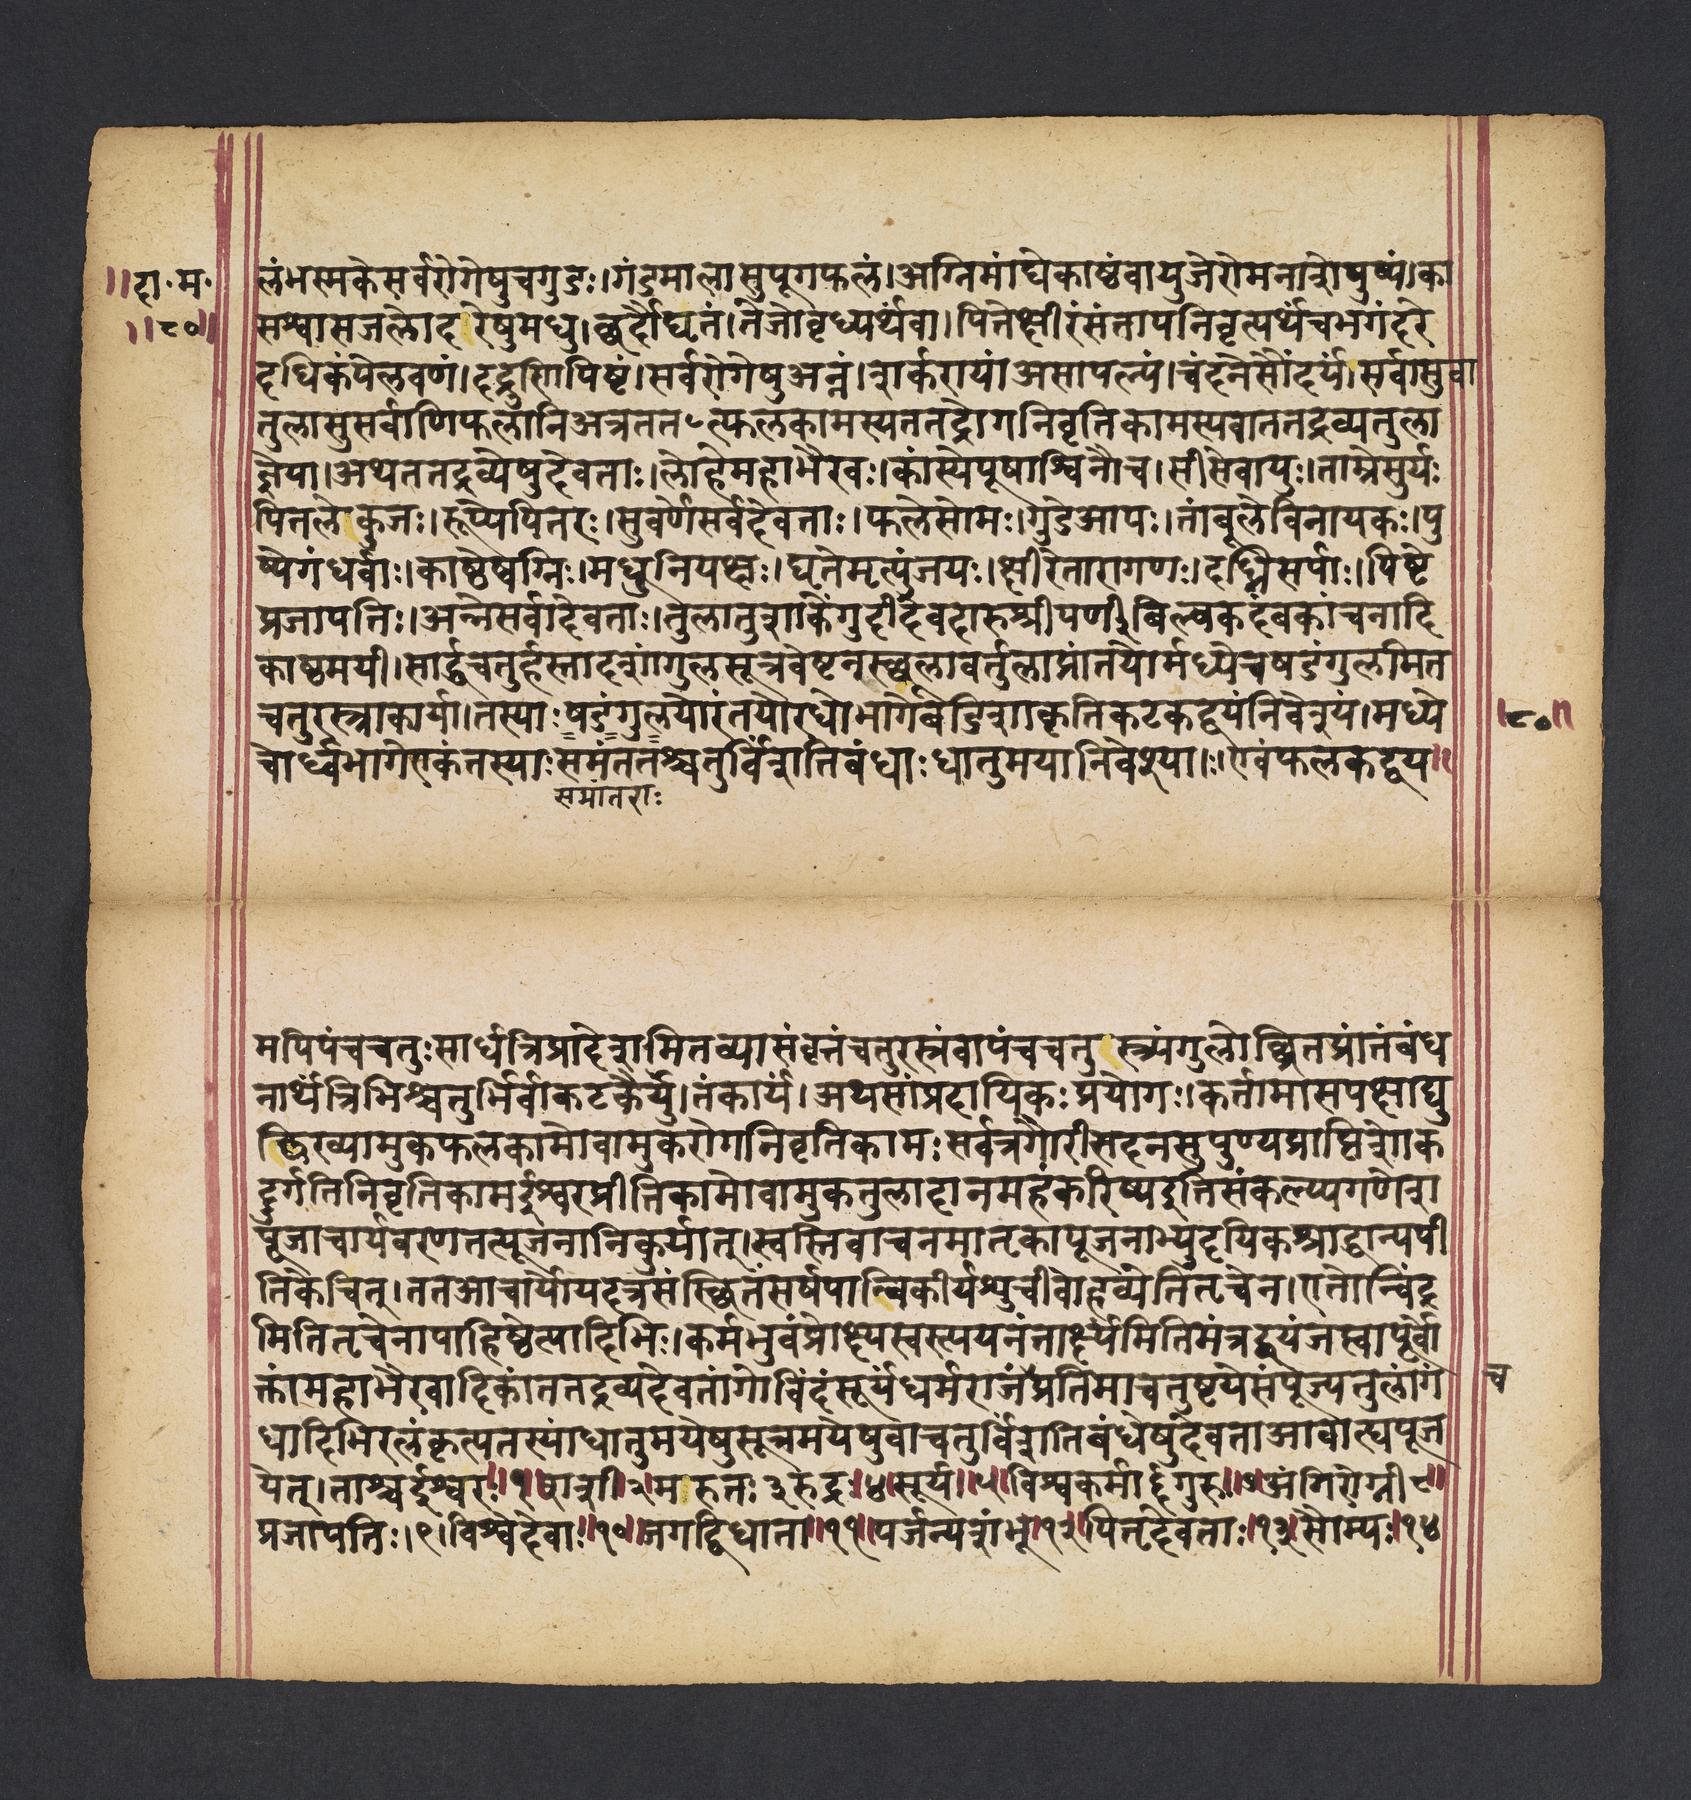 ॥दा॰म॰
॥८०॥
लंभस्मकेसर्वरोगेषुचगुडः।गंडमालासुपूगफलं।अग्निमांद्येकाष्ठंवायुजेरोमनाशेपुष्पं।का
सश्वासजलोदरेषुमधु।छर्दौघृतं।तेजोवृध्यर्थंवा।पित्तेक्षीरंसंतापनिवृत्यर्थंचभगंदरे
दधिकंपेलवणं।दद्रुणिपिष्टं।सर्वरोगेषुअन्नं।शर्करायांअसापल्पं।चंदनेसौंदर्यं।सर्वासुवा
तुलासुसर्वाणिफलानिअत्रतत्तत्फलकामस्यतत्तद्रोगनिवृत्तिकामस्यवातत्तद्रव्यतुला
ज्ञेया।अथतत्तद्रव्येषुदेवताः।लोहेमहाभैरवः।कांस्येपूषाश्विनौच।सीसेवायुः।ताम्रेसुर्यः
पितलेकुजः।रूप्येपितरः।सुवर्णेसर्वदेवताः।फलेसोमः।गुडेआपः।तांबूलेविनायकः।पु
ष्पेगंधर्वाः।काष्ठेष्वग्निः।मधुनियक्ष्मः।घृतेमृत्युंजयः।क्षीरेतारागणः।दध्निसर्पाः।पिष्टे
प्रजापतिः।अन्नेसर्वादेवताः।तुलातुशाकेंगुदीदेवदारुश्रीपर्णीबिल्वकदंबकांचनादि
काष्ठमयी।सार्द्धचतुर्हस्तादशांगुलसूत्रवेष्टनस्थूलावर्तुलाप्रांतयोर्मध्येचषडंगुलमित
चतुरस्त्राकार्या।तस्याःषडंगुलयोरंतयोरधोभागेबडिशाकृतिकटकद्वयंनिवेश्यं।मध्ये
॥८०॥
चोर्ध्वभागेएकंतस्याःसमंततश्चतुर्विंशतिबंधाःधातुमयानिवेश्याः।एवंफलकद्वय॥
समांतराः
मपिपंचचतुःसार्धत्रिप्रादेशमितव्यासंवृत्तंचतुरस्त्रंवापंचचतुस्त्र्यंगुलोच्छ्रितप्रांतंबंध
नार्थंत्रिभिश्चतुर्भिर्वाकटकैर्यु।तंकार्यं।अथसांप्रदायिकःप्रयोगः।कर्तामासपक्षाद्यु
ल्लिख्यामुकफलकामोवामुकरोगनिवृतिकामःसर्वत्रगौरीसदनसुपुण्यप्राप्तिशोक
दुर्गतिनिवृतिकामईश्वरप्रीतिकामोवामुकतुलादानमहंकरिष्यइतिसंकल्प्यगणेश
पूजाचार्यवरणतत्पूजनानिकुर्यात्।स्वस्तिवाचनमातृकापूजनाभ्युदयिकश्राद्धान्यपी
तिकेचित्।ततआचार्योयदत्रसंस्थितंसर्षपान्विकीर्यश्शुचीवोहव्येतितृचेन।एतोन्विंद्र
मितितृचेनापोहिष्ठेत्यादिभिः।कर्मभुवंप्रोक्ष्यस्वस्त्ययनंतार्क्ष्यमितिमंत्रद्वयंजप्त्वापूर्वो
क्तांमहाभैरवादिकांतत्तद्रव्यदेवतांगोविंदंसूर्यंधर्मराजंप्रतिमाचतुष्टयेसंपूज्यतुलांगं
च
धादिभिरलंकृत्यतस्यांधातुमयेषुसूत्रमयेषुवाचतुर्विंशतिबंधेषुदेवताआवोत्घपूज
येत्।ताश्चईश्वरः॥१॥शशी।२।मरुतः३रुद्रः॥४॥सूर्य॥५॥विश्वकर्मा६गुरु॥७॥अंगिरोग्नी८॥
प्रजापतिः।९।विश्वेदेवाः॥१०॥जगद्विधाता॥११॥पर्जन्यशंभू१२॥पितृदेवताः॥१३॥सौम्यः॥१४